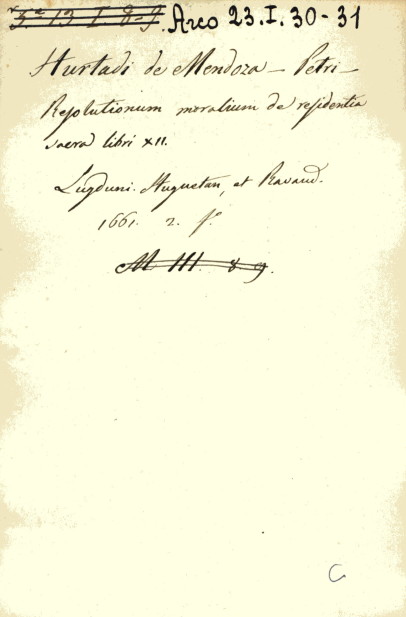 5.ª 13 I 8-9. Arco 23.I.30-31
Hurtadi de Mendoza - Petri -
Resolutionum moralium de residentia
sacra libri XII.
Lugduni. Huguetan, et Ravaud.
1661. 2. f.º
M III. 8 9.
C